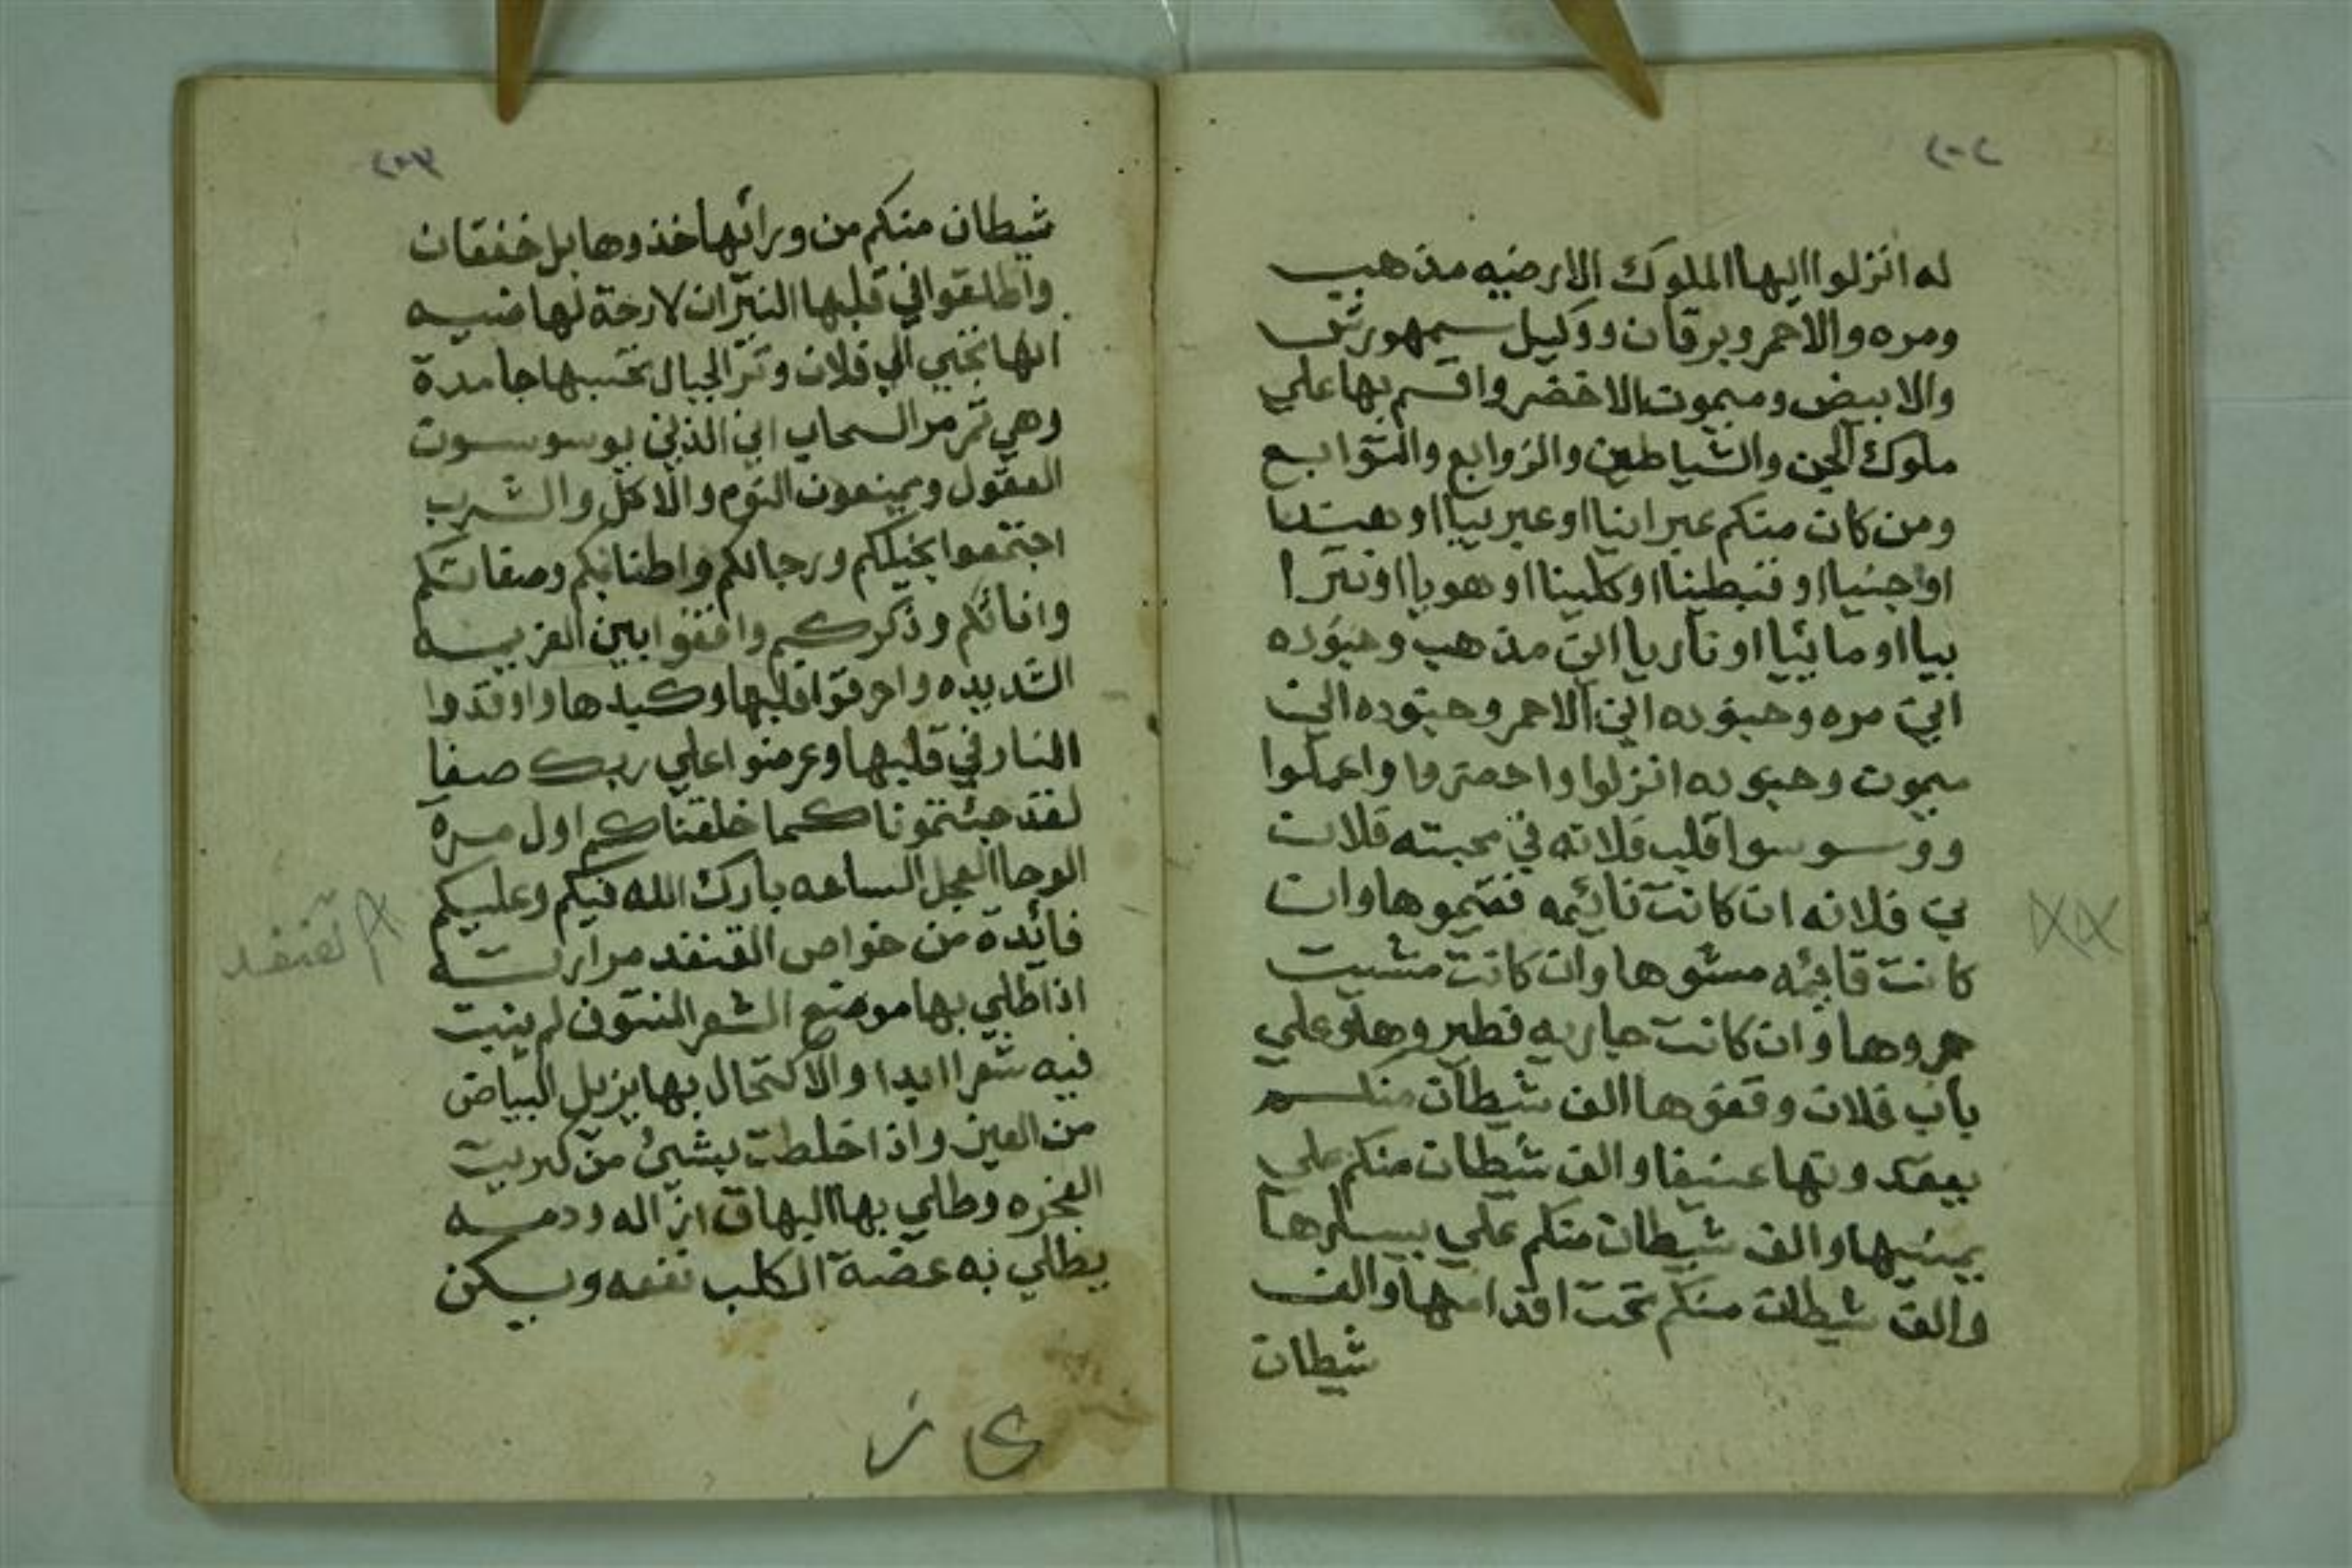 ٢٠٢
له انزلوا اليها الملوك الارضيه مذهب
ومره والاحمر وبرقان ووكيل سمهورش
والابيض وميموت الاخضر واقسم بها علي
ملوك الجن والشياطين والزوابع والتوابع
ومن كان منكم عبرانيا او عبربيا او هندا
او
بيا او مائيا او ناريا اين مذهب وجنوده
اين مره وجنوده اين الاحمر وجنوده اين
ميموت وجنوده انزلوا واحضروا واعملوا
ووسوسوا قلب فلانه في محبته فلان
بن فلانه ان كانت نائيمه فقيموها وان
كانت قائيمه مشوها وان كانت مشيت
جروها وان كانت جاريه فطيروها وعلي
باب فلان وقفوها الف شيطان منكم
يقدونها عنيفا والف شيطان منكم علي
يمينها والف شيطان منكم علي يسارها
والف شيطان منكم تحت اقدامها والف
شيطان
٢٠٣
شيطان منكم من ورائها خذوها بل خفقان
واطلقوا في قلبها النيران لا رحة لها فيه
انها تجيي الي فلان وتر الجبال تحسبها جامدة
وهي تمر مر السحاب اين الذين يوسوسون
العقول ويمنعون النوم والاكل والشرب
اجتمعوا بخيلكم ورجالكم واطنابكم وصفاتكم
واناثكم وذكركم واقفوا بين العزيمه
الشديده واحرقوا قلبها وكبدها واوقدوا
النار في قلبها وعرضوا علي ربك صفا
لقد جئتمونا كما خلقناكم اول مرة
الوحا العجل الساعه بارك الله فيكم وعليكم
فائدة من خواص القنفد مرارته
اذا طلي بها موضع الشعر المنتوف لم ينبت
فيه شعرا ابدا والاكتحال بها يزيل البياض
من العين واذا اخلطت بشيئ من كبريت
وطلي بها البهاق ازاله ودمه
يطلي به عضة الكلب نفعه ويسكن
لقنفد